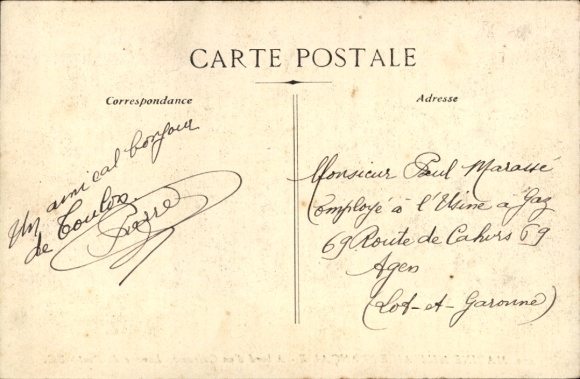 CARTE POSTALE
Correspondance
Adresse
Un amical bonjour
de Toulon
Pierre
Monsieur Paul Marassé
Employé à l'Usine a Gaz
69 Route de Cahors 69
Agen
(Lot-et-Garonne)